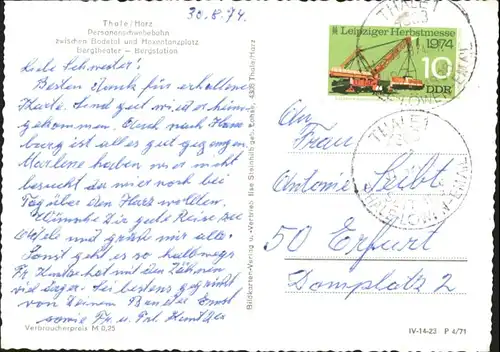 30.8.74.
Thale/Harz
Personenschwebebahn
zwischen Bodetal und Hexentanzplatz
Bergtheater – Bergstation
Liebe Schwester!
Besten Dank für erhaltene
Karte. Sind gut wieder heim
gekommen. Auch nach
ist alles gut gegangen.
Marlene haben wir nicht
besucht da wir noch bei
Tag über den Harz wollten.
Wünsche Dir gute Reise
und grüße mir alle.
Sonst geht es so halbwegs
Fr. hat mit den Zähnen
viel Ärger. Sei bestens gegrüßt
von Deinem Bruder Ernst
sowie Fr. u.
Verbraucherpreis M 0,25
Bildkarten-Verlag u. -Vertrieb Ilse 4308 Thale/Harz
Leipziger Herbstmesse
1974
10
DDR
THALE 1
THALE 1
An
Frau
Antonie Seibt
50 Erfurt
Domplatz 2
IV-14-23 P 4/71